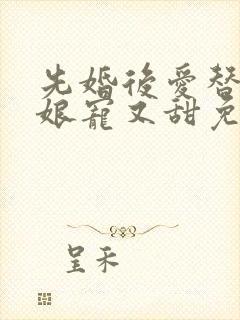 先婚後愛替
娘寵又甜免
呈禾